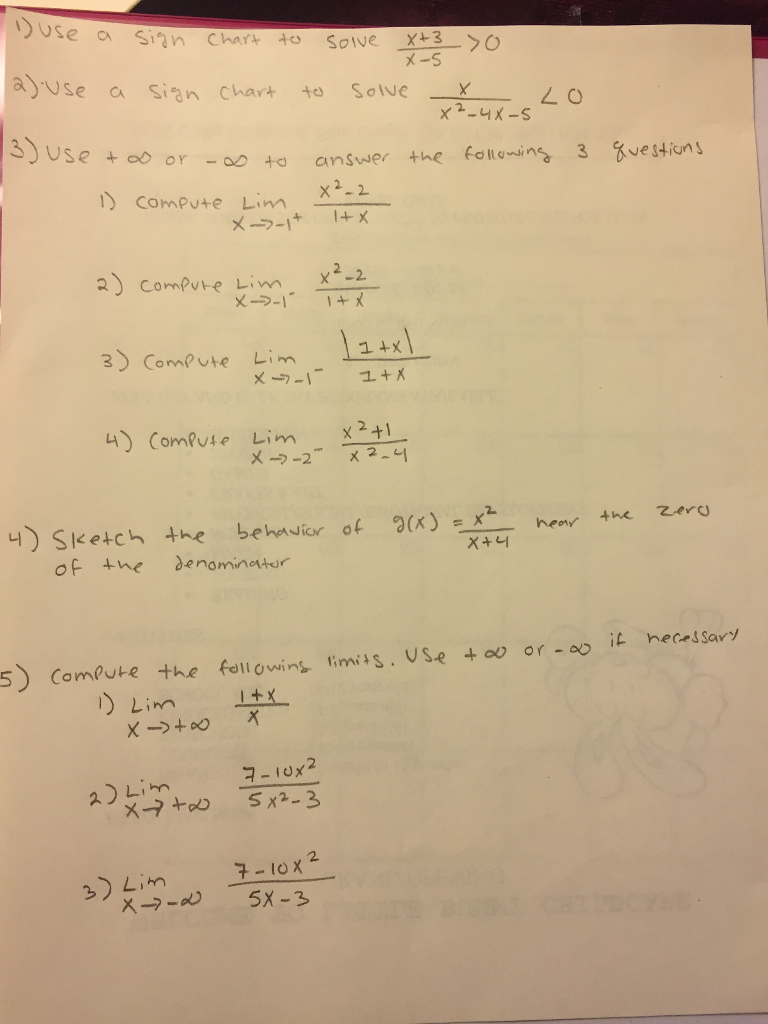 1) Use a sign chart to solve x+3/x-5 >0
2) Use a sign chart to solve x/x²-4x-5 <0
3) Use +∞ or -∞ to answer the following 3 questions
1) compute Lim x→-1⁺ x²-2/1+x
2) compute Lim x→-1⁻ x²-2/1+x
3) compute Lim x→-1⁻ |1+x|/1+x
4) compute Lim x→-2⁻ x²+1/x²-4
4) Sketch the behavior of g(x) = x²/x+4 near the zero
of the denominator
5) compute the following limits. Use +∞ or -∞ if necessary
1) Lim x→+∞ 1+x/x
2) Lim x→+∞ 7-10x²/5x²-3
3) Lim x→-∞ 7-10x²/5x-3